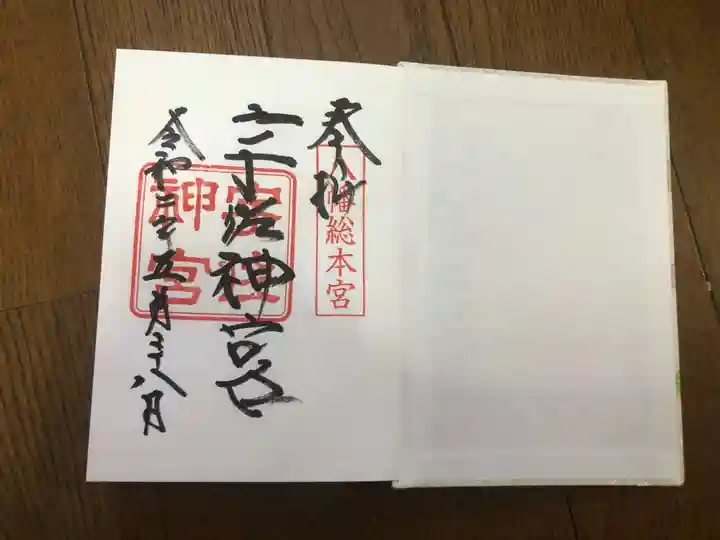 奉拝
八幡総本宮
宇佐神宮
宇佐
神宮
令和 年五月二十八日